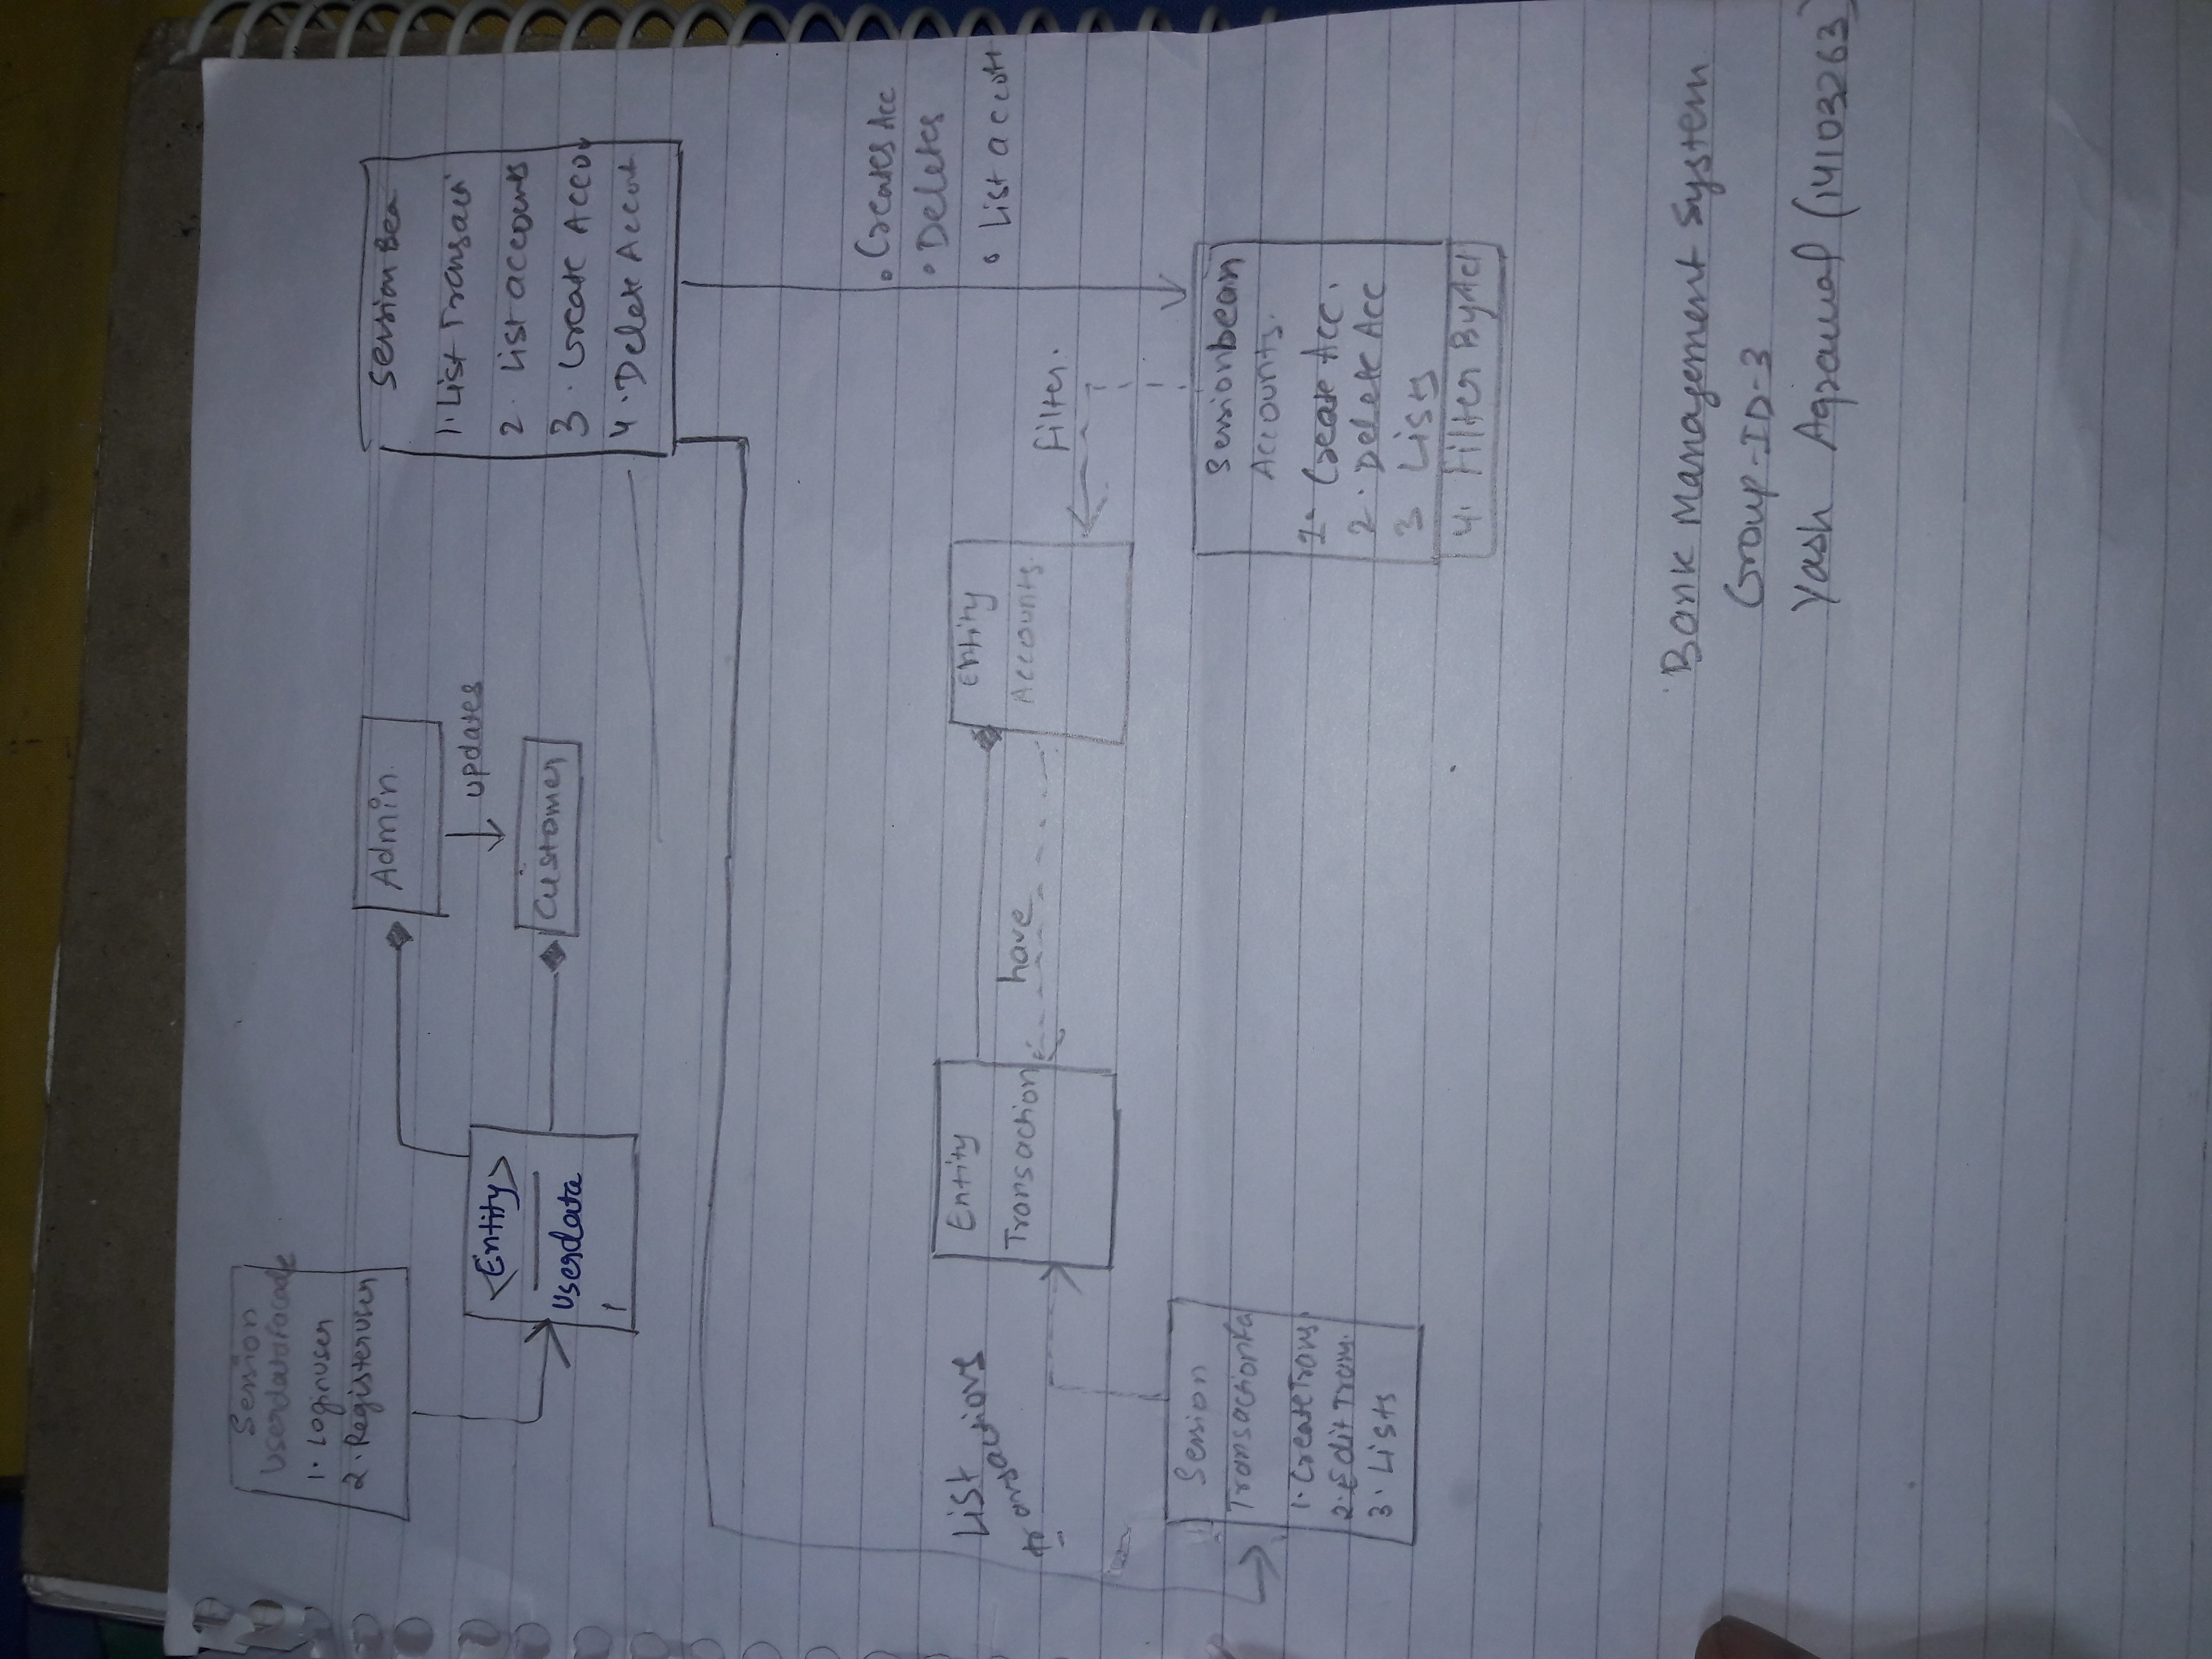 Session
Userdatafacade
1. Loginuser
2. Registeruser
<Entity>
Userdata
1
Admin.
updates
Customer
Session Bea
1. List Transacti
2. List accounts
3. Create Accou
4. Delete Accout
Creates Acc
Deletes
List accott
List
transactions
Entity
Transaction
have
Entity
Accounts.
Filter.
Session
TransactionFa
1. CreateTrans
2. Edit Tram.
3. Lists
Sessionbean
Accounts.
1. Create Acc.
2. Delete Acc
3 Lists
4. Filter By Act
Bank Management System
Group-ID-3
Yash Agrawal (14103263)